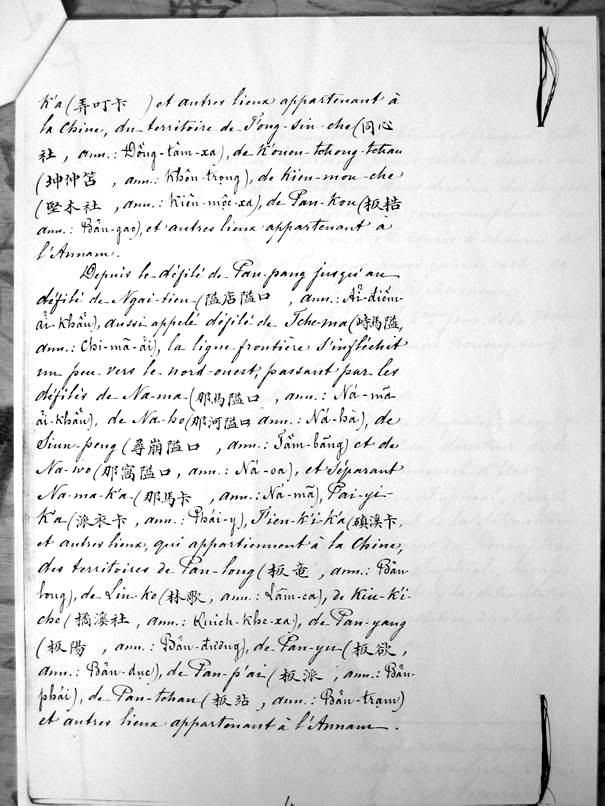 k'a (弄叮卡) et autres lieux appartenant à
la Chine, du territoire de T'ong-sin-che (同心
社, ann.: Đồng-tâm-xa), de K'ouen-tchong-tchau
(坤仲笘, ann.: Khôn-trọng), de Kien-mou-che
(堅木社, ann.: Kiên-mộc-xa), de Pan-kou (板梏
ann.: Bản-gao), et autres lieux appartenant à
l'Annam.
Depuis le défilé de Pan-pang jusqu'au
défilé de Ngai-tien (隘店隘口, ann.: Ải-điếm-
ải-khẩu), aussi appelé défilé de Tche-ma (峙馬隘,
ann.: Chi-mã-ải), la ligne frontière s'infléchit
un peu vers le nord-ouest, passant par les
défilés de Na-ma (那馬隘口, ann.: Ná-mã-
ải-khẩu), de Na-ho (那河隘口 ann.: Ná-hà), de
Siun-peng (尋崩隘口, ann.: Tầm-băng) et de
Na-wo (那窩隘口, ann.: Ná-oa), et séparant
Na-ma-k'a (那馬卡, ann.: Ná-mã), Pai-yi-
k'a (派衣卡, ann.: Phái-y), Tien-k'i-k'a (磌溪卡,
et autres lieux, qui appartiennent à la Chine,
des territoires de Pan-long (板竜, ann.: Bản-
long), de Lin-ko (林歌, ann.: Lâm-ca), de Kiu-k'i-
che (橘溪社, ann.: Quich-khe-xa), de Pan-yang
(板陽, ann.: Bản-dương), de Pan-yu (板欲,
ann.: Bản-duc), de Pan-p'ai (板派, ann.: Bản-
phái), de Pan-tchan (板站, ann.: Bản-tram)
et autres lieux appartenant à l'Annam.